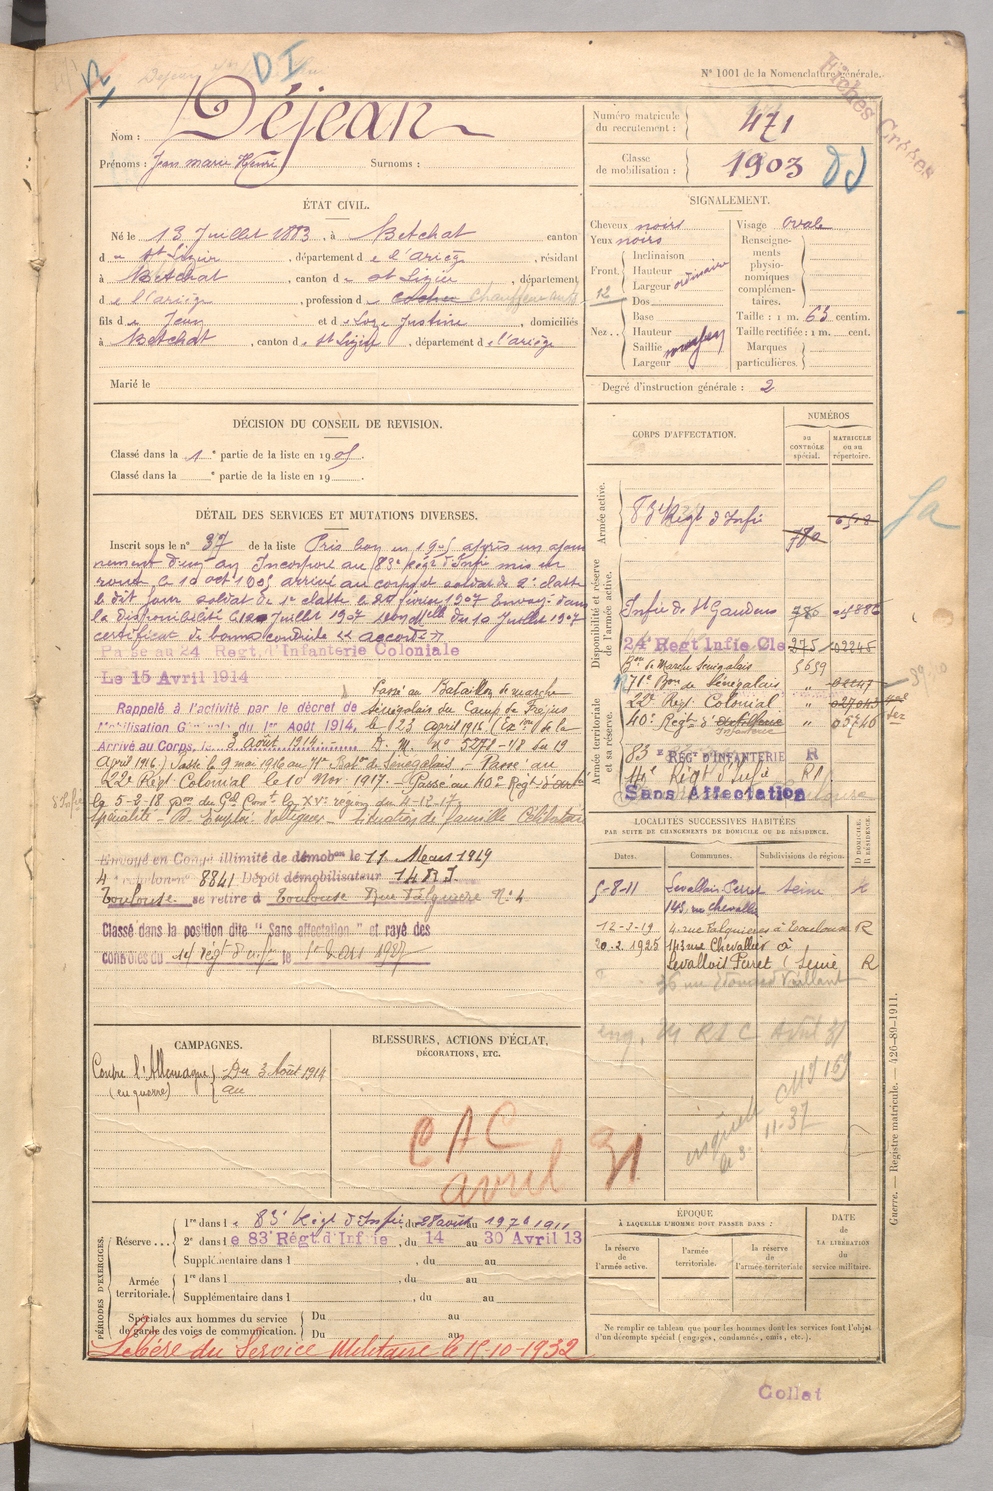 DI
Nº 1001 de la Nomenclature générale.
Fiches
Nom : Déjean
Prénoms : Jean marie Henri Surnoms :
Numéro matricule du recrutement : 471
Classe de mobilisation : 1903
ÉTAT CIVIL.
Né le 13 Juillet 1883, à Betchat canton
d e St Lizier, département d e l'ariège, résidant
à Betchat, canton d e St Lizier, département
d e l'ariège, profession d e cocher Chauffeur
fils d e Jean et d e Justine, domiciliés
à Betchat, canton d e St Lizier, département d e l'ariège
Marié le
SIGNALEMENT.
Cheveux noirs
Yeux noirs
Front. Inclinaison
Hauteur ordinaire
Largeur
12
Dos
Nez.. Base
Hauteur
Saillie moyen
Largeur
Visage ovale
Renseignements physionomiques complémentaires.
Taille : 1 m. 63 centim.
Taille rectifiée : 1 m. cent.
Marques particulières.
Degré d'instruction générale : 2
DÉCISION DU CONSEIL DE REVISION.
Classé dans la 1e partie de la liste en 1905.
Classé dans la e partie de la liste en 19
DÉTAIL DES SERVICES ET MUTATIONS DIVERSES.
Inscrit sous le nº 37 de la liste Pris bon en 1905 après un ajour
nement d'un an Incorporé au 83e Régt d'Infie mis en
route le 10 oct 1905 arrivé au corps et soldat de 2e classe
le dit jour soldat de 1e classe le 20 février 1907 Envoyé dans
la disponibilité le 12 Juillet 1907 du 10 Juillet 1907
certificat de bonne conduite "accordé"
Passé au 24 Regt. d'Infanterie Coloniale
Le 15 Avril 1914
Passé au Bataillon de marche
Rappelé à l'activité par le décret de Sénégalais du Camp de Fréjus
Mobilisation Générale du 1er Août 1914, le (23 april 1916 (Exon de la
Arrivé au Corps, le 3 août 1914 D. M. nº 5271-1/8 du 19
April 1916.) Passé le 9 mai 1916 au 71e Batn de Sénégalais. - Passé au
22e Régt Colonial le 10 Nov. 1917. - Passé au 40e Régt d'
le 5-2-18 du Gal Comt la XVe région du 4-12-17
Spécialité - Emploi Voltigeur - Situation de famille Célibataire
Envoyé en Congé illimité de démobon le 11 Mars 1919
4 échelon nº 8841 Dépôt démobilisateur 14 R I
Toulouse se retire à Toulouse Rue Falguière Nº 4
Classé dans la position dite "Sans affectation" et rayé des
contrôles du 14e régt d'inf le 1er Mars 1927
CORPS D'AFFECTATION.
NUMÉROS
AU CONTRÔLE spécial.
MATRICULE ou au répertoire.
Armée active.
83e Régt d'Infie
Disponibilité et réserve de l'armée active.
Infie de St Gaudens
24 Regt Infie Cle 275 02245
Bon de Marche Sénégalais 5659
71e Bon de Sénégalais "
22e Régt Colonial "
Armée territoriale et sa réserve.
40e Régt d'Infanterie " 05746
83 e RÉGt D'INFANTERIE R
14e Régt d'Infie
Sans Affectation
LOCALITÉS SUCCESSIVES HABITÉES
PAR SUITE DE CHANGEMENTS DE DOMICILE OU DE RÉSIDENCE.
D DOMICILE. R RÉSIDENCE.
Dates. Communes. Subdivisions de région.
5-8-11 Levallois-Perret Seine R
143 rue Chevallier
12-3-19 4 rue Falguières à Toulouse R
20.2.1925 143 rue Chevallier à
Levallois Perret (Seine R
36 rue Edouard Vaillant
CAMPAGNES.
Contre l'Allemagne Du 3 Août 1914
(en guerre) au
BLESSURES, ACTIONS D'ÉCLAT,
DÉCORATIONS, ETC.
CAC
avril 31
11-37
PÉRIODES D'EXERCICES.
Réserve... 1re dans l e 83e Régt d'Infie, du 28 août au 1911
2e dans l e 83e Régt. d'Infie, du 14 au 30 Avril 13
Supplémentaire dans l , du au
Armée territoriale. 1re dans l , du au
Supplémentaire dans l , du au
Spéciales aux hommes du service de garde des voies de communication. Du au
Du au
Libéré du Service Militaire le 15-10-1932
ÉPOQUE
À LAQUELLE L'HOMME DOIT PASSER DANS :
la réserve de l'armée active.
l'armée territoriale.
la réserve de l'armée territoriale
DATE DE LA LIBÉRATION du service militaire.
Ne remplir ce tableau que pour les hommes dont les services font l'objet
d'un décompte spécial (engagés, condamnés, omis, etc.).
Guerre. — Registre matricule. — 426-89-1911.
Collat